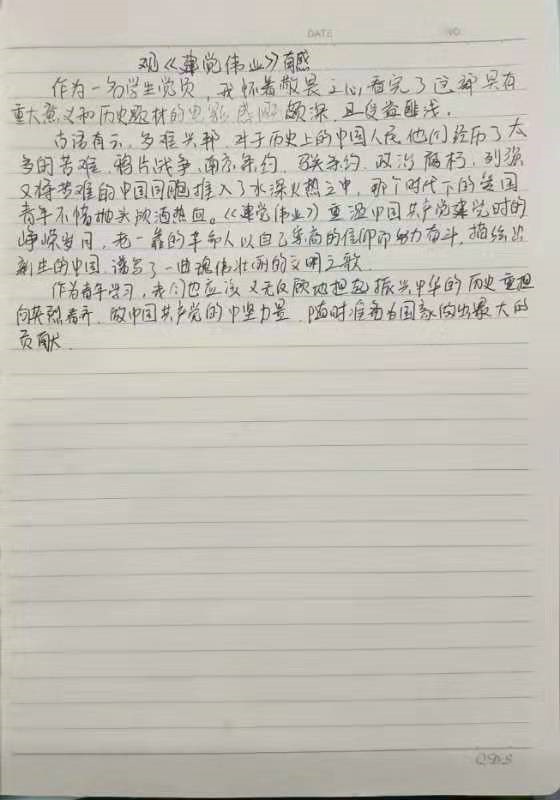 DATE NO
观《建党伟业》有感
作为一名学生党员，我怀着敬畏之心看完了这部具有
重大意义和历史题材的电影感触颇深，且受益匪浅。
古话有云，多难兴邦，对于历史上的中国人民他们经历了太
多的苦难，鸦片战争、南京条约、马关条约，政治腐朽，列强
又将苦难的中国同胞推入了水深火热之中，那个时代下的爱国
青年不惜抛头颅洒热血。《建党伟业》重温中国共产党建党时的
峥嵘岁月，老一辈的革命人以自己崇高的信仰而努力奋斗，描绘出
新生的中国，谱写了一曲瑰伟壮丽的文明之歌
作为青年学习，我们也应该义无反顾地担起振兴中华的历史重担
向英烈看齐，做中国共产党的中坚力量，随时准备为国家做出最大的
贡献.